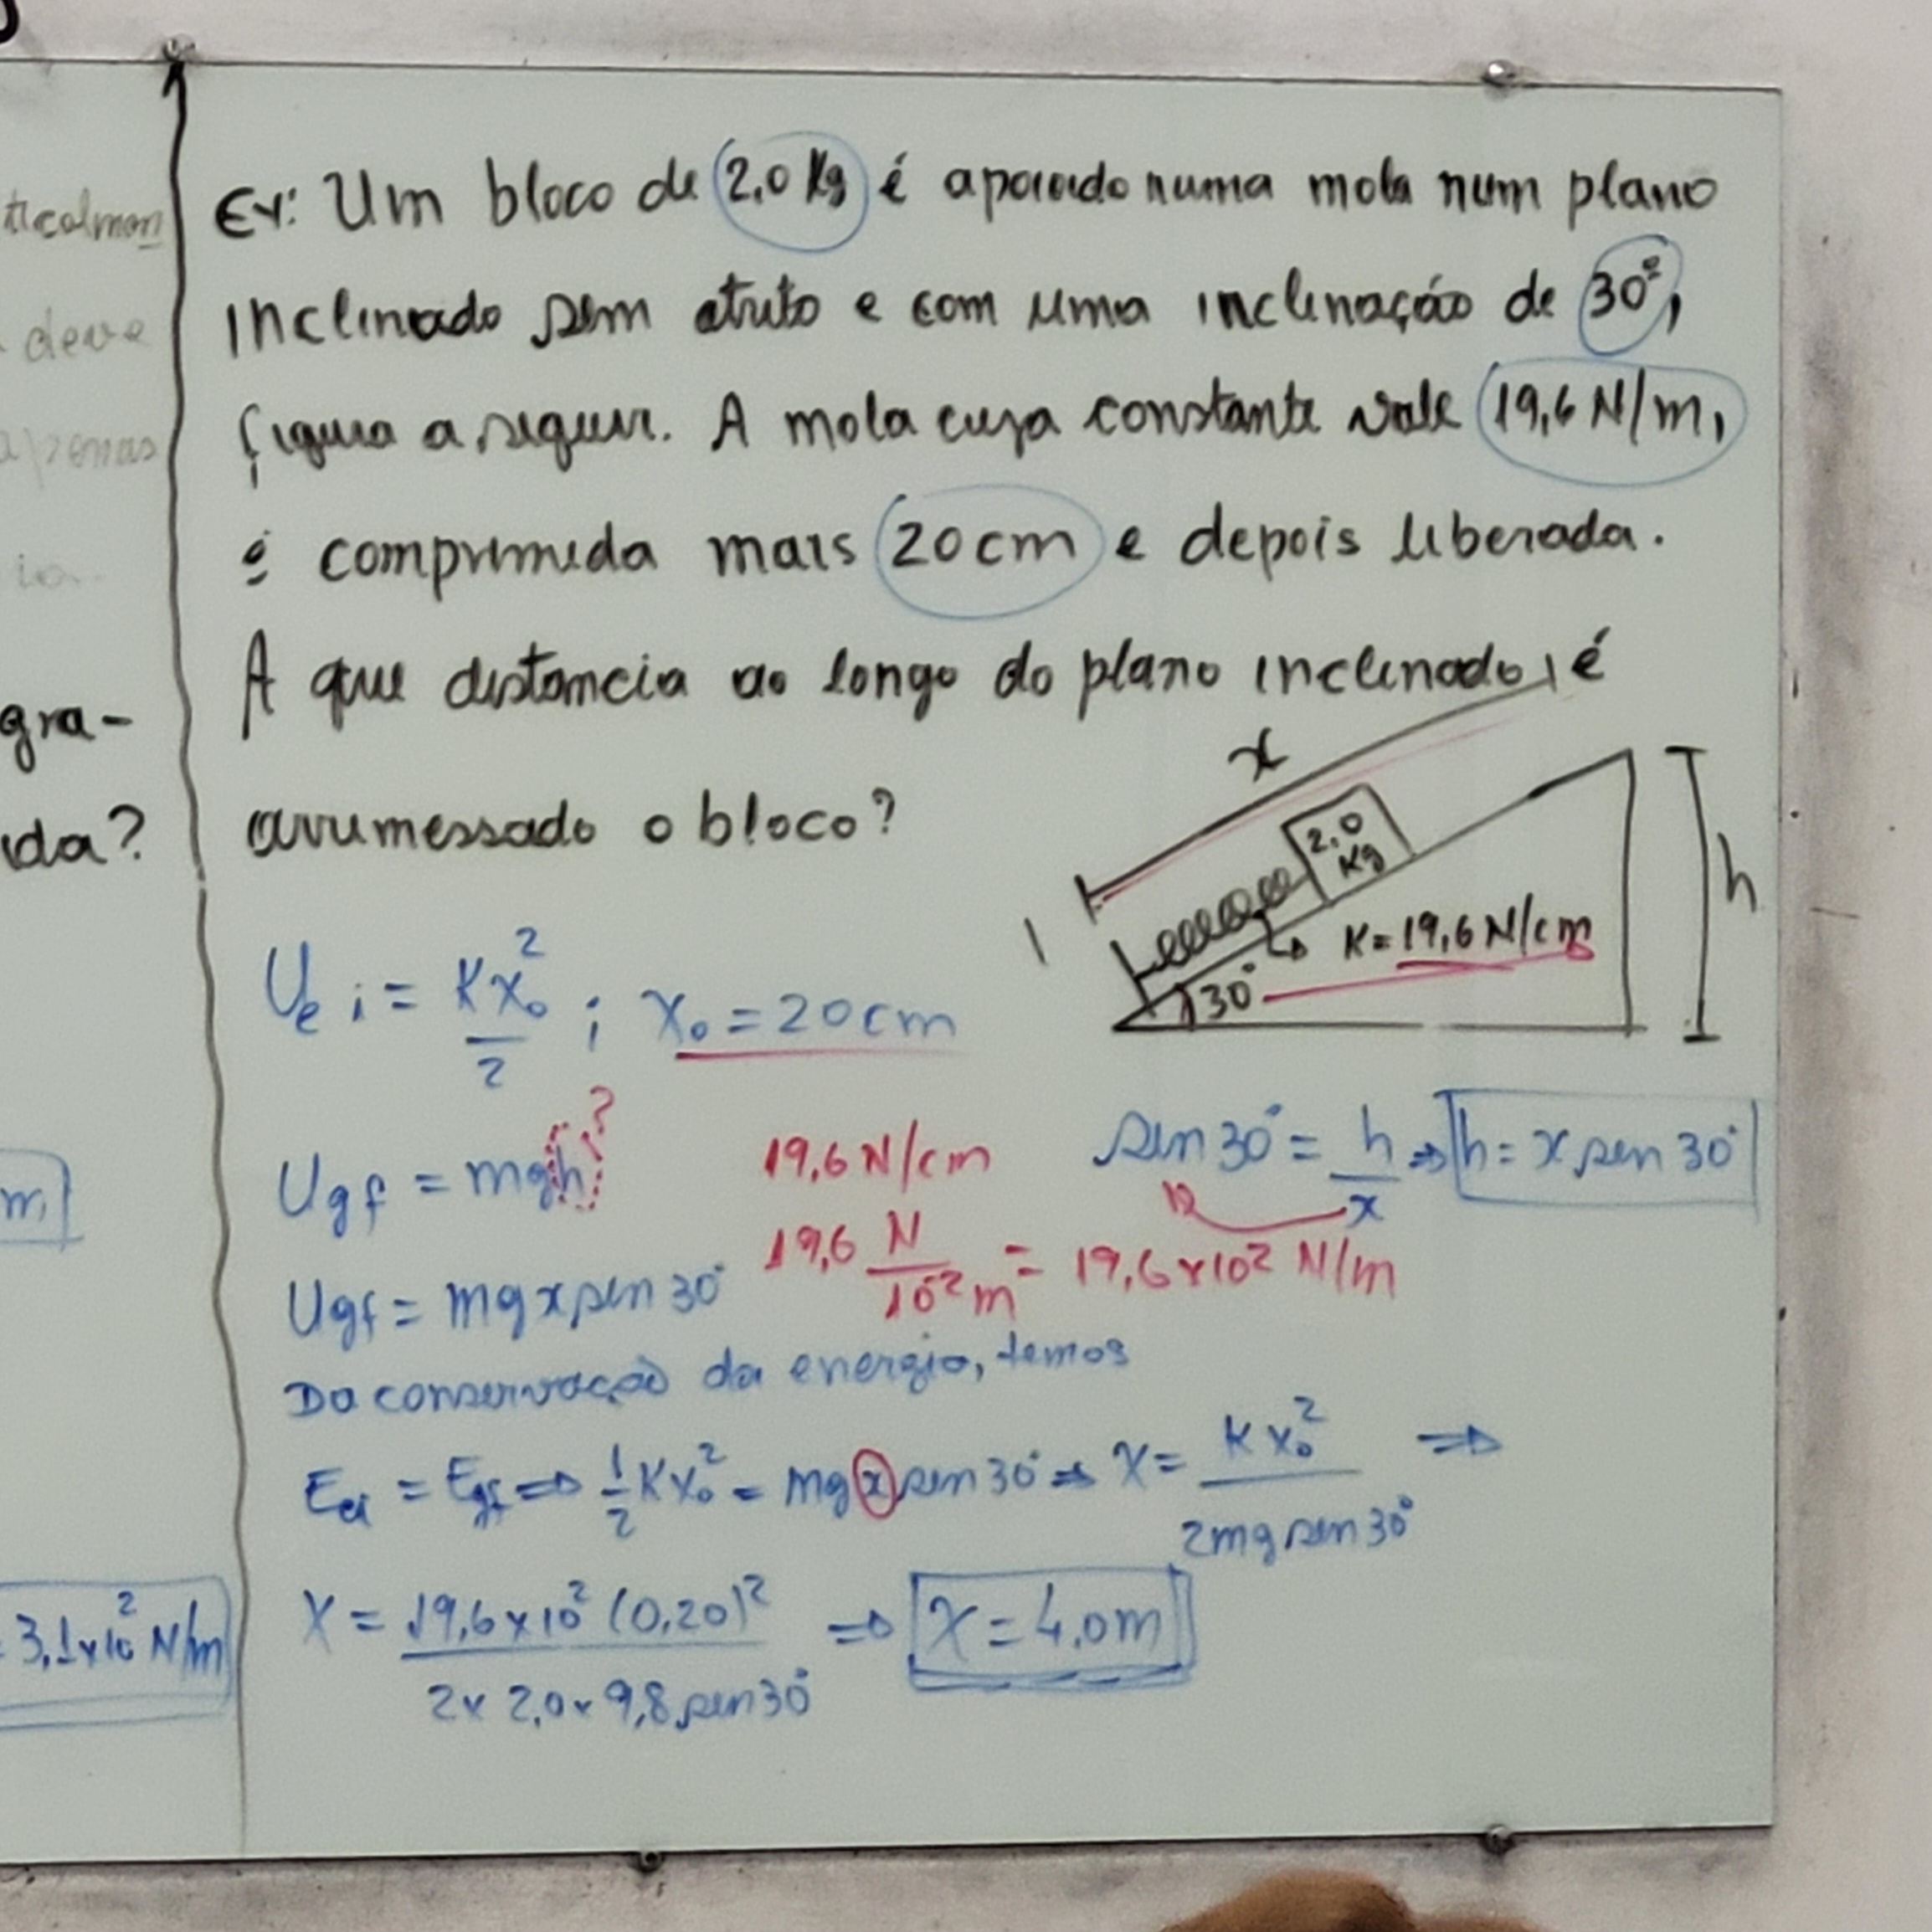 ticalmen
deve
apenas
ia.
gra-
ida?
m
3,1x10² N/m
Ex: Um bloco de 2,0 Kg é apoiado numa mola num plano
inclinado sem atrito e com uma inclinação de 30º,
figura a seguir. A mola cuja constante vale 19,6 N/m,
é comprimida mais 20cm e depois liberada.
A que distancia ao longo do plano inclinado, é
arremessado o bloco?
x
2,0
Kg
h
K=19,6 N/cm
30°
Ue i = Kx₀²/2 ; x₀ = 20cm
Ugf = mgh ?
19,6 N/cm
sen 30° = h/x ⇒ h = x sen 30°
19,6 N/10⁻² m = 19,6x10² N/m
Ugf = mg x sen 30°
Da conservação da energia, temos
Eei = Egf ⇒ 1/2 Kx₀² = mg x sen 30° ⇒ x = Kx₀²/2mg sen 30° ⇒
x = 19,6x10² (0,20)²/2x 2,0x 9,8 sen 30° ⇒ x = 4,0m